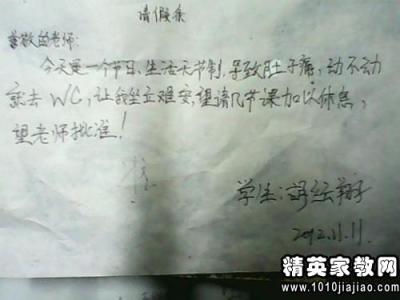 请假条
尊敬的老师:
今天是一个节日、生活无节制,导致肚子痛,动不动
就去WC,让我坐立难安,望请几节课加以休息,
望老师批准!
学生:
2012.11.11.
精英家教网
www.1010jiajiao.com